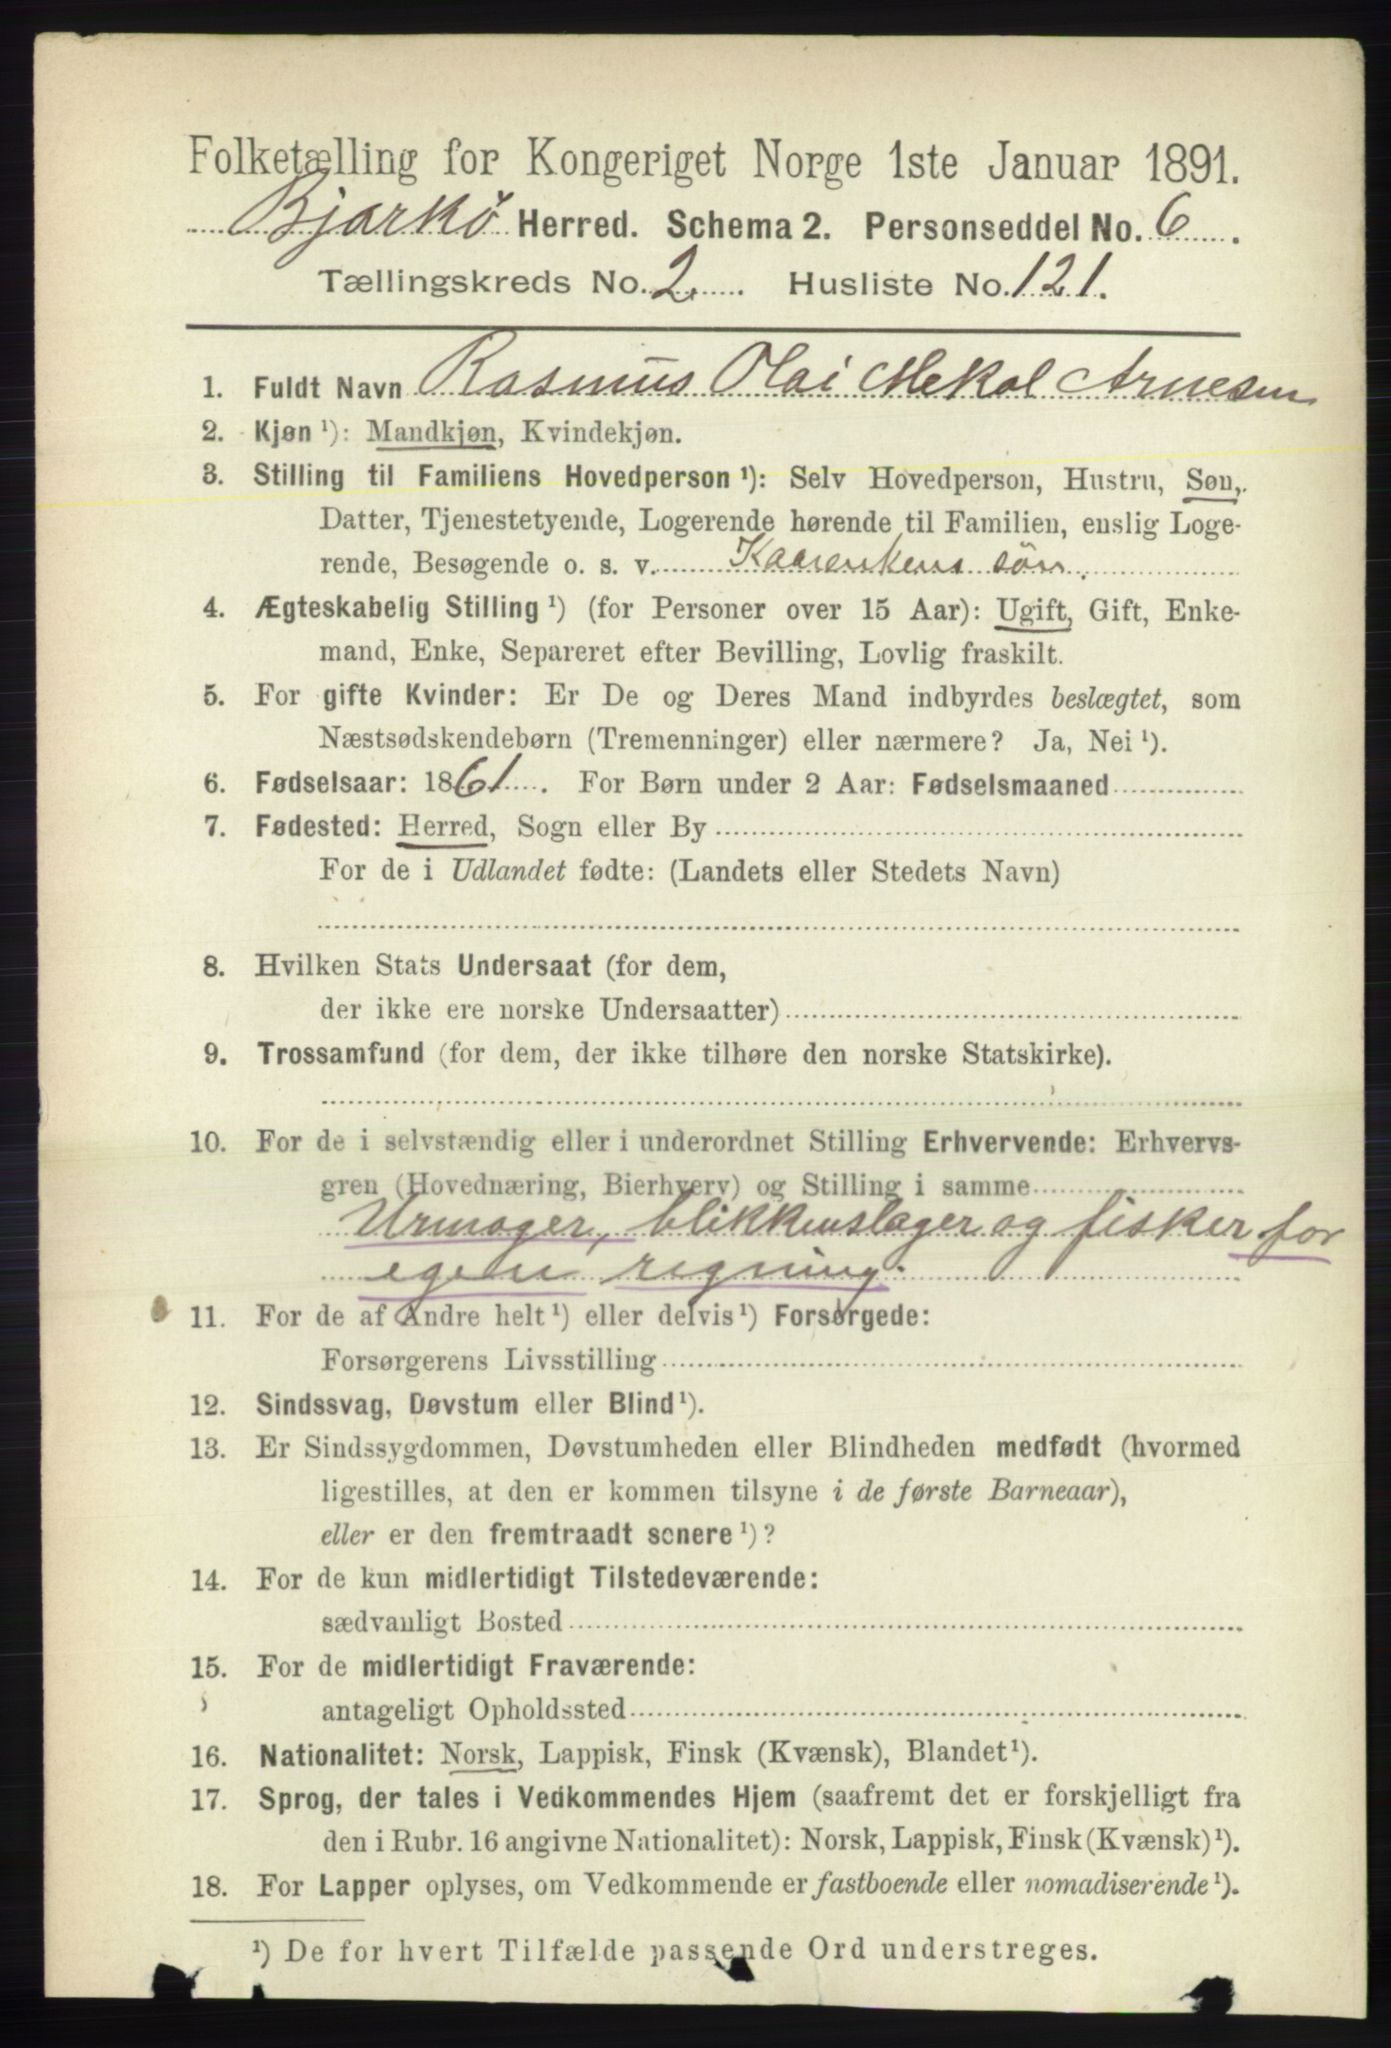 Folketælling for Kongeriget Norge 1ste Januar 1891.
Bjarkö Herred. Schema 2. Personseddel No. 6.
Tællingskreds No. 2. Husliste No. 121.
1. Fuldt Navn Rasmus Olai Mekal Arnesen
2. Kjøn ¹): Mandkjøn, Kvindekjøn.
3. Stilling til Familiens Hovedperson ¹): Selv Hovedperson, Hustru, Søn,
Datter, Tjenestetyende, Logerende hørende til Familien, enslig Loge-
rende, Besøgende o. s. v. søn.
4. Ægteskabelig Stilling ¹) (for Personer over 15 Aar): Ugift, Gift, Enke-
mand, Enke, Separeret efter Bevilling, Lovlig fraskilt.
5. For gifte Kvinder: Er De og Deres Mand indbyrdes beslægtet, som
Næstsødskendebørn (Tremenninger) eller nærmere? Ja, Nei ¹).
6. Fødselsaar: 1861. For Børn under 2 Aar: Fødselsmaaned
7. Fødested: Herred, Sogn eller By
For de i Udlandet fødte: (Landets eller Stedets Navn)
8. Hvilken Stats Undersaat (for dem,
der ikke ere norske Undersaatter)
9. Trossamfund (for dem, der ikke tilhøre den norske Statskirke).
10. For de i selvstændig eller i underordnet Stilling Erhvervende: Erhvervs-
gren (Hovednæring, Bierhverv) og Stilling i samme
Urmager, blikkenslager og fisker for
egen regning.
11. For de af Andre helt ¹) eller delvis ¹) Forsørgede:
Forsørgerens Livsstilling
12. Sindssvag, Døvstum eller Blind ¹).
13. Er Sindssygdommen, Døvstumheden eller Blindheden medfødt (hvormed
ligestilles, at den er kommen tilsyne i de første Barneaar),
eller er den fremtraadt senere ¹)?
14. For de kun midlertidigt Tilstedeværende:
sædvanligt Bosted
15. For de midlertidigt Fraværende:
antageligt Opholdssted
16. Nationalitet: Norsk, Lappisk, Finsk (Kvænsk), Blandet ¹).
17. Sprog, der tales i Vedkommendes Hjem (saafremt det er forskjelligt fra
den i Rubr. 16 angivne Nationalitet): Norsk, Lappisk, Finsk (Kvænsk) ¹).
18. For Lapper oplyses, om Vedkommende er fastboende eller nomadiserende ¹).
¹) De for hvert Tilfælde passende Ord understreges.